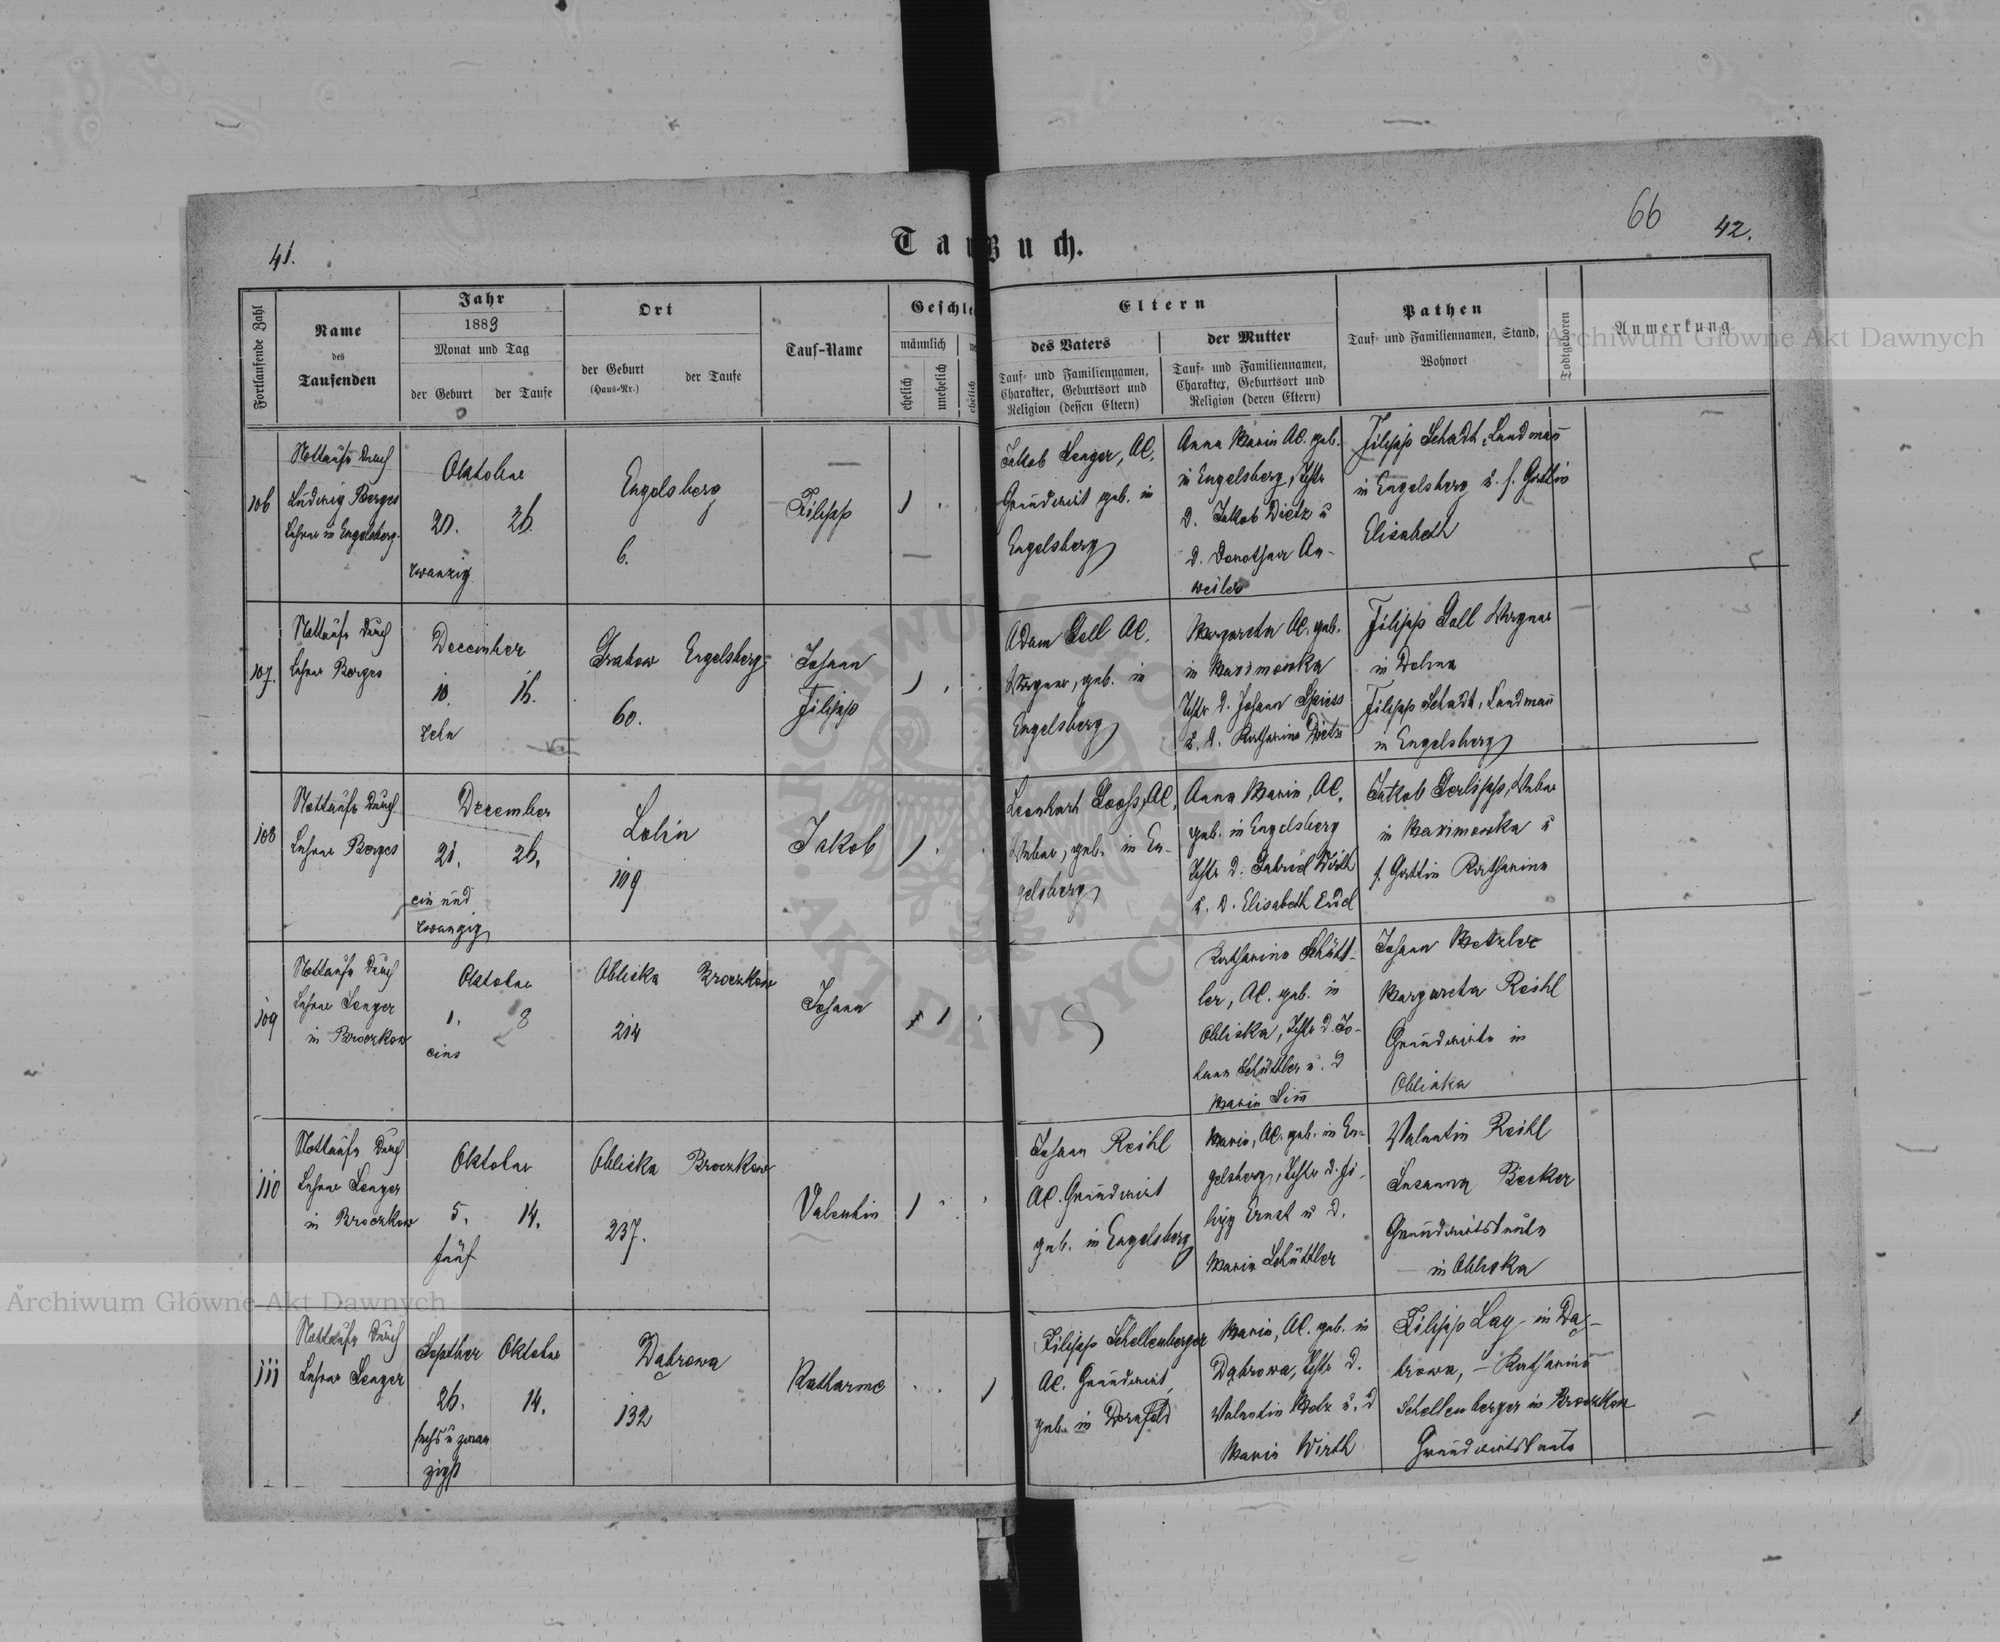 66
41.
42.
Taufbuch.
Fortlaufende Zahl
Name
des
Taufenden
Jahr
1883
Monat und Tag
der Geburt
der Taufe
Ort
der Geburt
(Haus-Nr.)
der Taufe
Tauf-Name
Geschle
männlich
ehelich
unehelich
ehelich
Eltern
des Vaters
Tauf- und Familiennamen,
Charakter, Geburtsort und
Religion (dessen Eltern)
der Mutter
Tauf- und Familiennamen,
Charakter, Geburtsort und
Religion (deren Eltern)
Pathen
Tauf- und Familiennamen, Stand,
Wohnort
Todtgeboren
Anmerkung
106
Nottaufe durch
Ludwig Berges
Lehrer in Engelsberg
Oktober
20.
26.
zwanzig
Engelsberg
6.
Filipp
1
Jakob Senger, AC.
Grundwirt geb. in
Engelsberg
Anna Maria AC. geb.
in Engelsberg, Tchtr
d. Jakob Dietz u
d. Dorothea An-
weiler
Filipp Schadt, Landmann
in Engelsberg u. s. Gattin
Elisabeth
107.
Nottaufe durch
Lehrer Berges
December
10.
16.
zehn
Grabow
Engelsberg
60.
Johann
Filipp
1
Adam Goll AC.
Wagner, geb. in
Engelsberg
Margareta AC. geb.
in Maximowka
Tchtr d. Johann Spiess
u. d. Katharina Dietz
Filipp Goll Wagner
in Dolina
Filipp Schadt, Landmann
in Engelsberg
108
Nottaufe durch
Lehrer Berges
December
21.
26.
ein und
zwanzig
Lolin
109
Jakob
1
Leonhart Looss, AC,
Weber, geb. in En-
gelsberg
Anna Maria, AC,
geb. in Engelsberg
Tchtr d. Gabriel Wirth
u. d. Elisabeth
Jakob Weber
in Maximowka u
s. Gattin Katharina
109
Nottaufe durch
Lehrer Senger
in Broczkow
Oktober
1.
8
eins
Obliska
Broczkow
214
Johann
1
Katharina Schütt-
ler, AC. geb. in
Obliska, Tchtr d. Jo-
hann Schüttler u. d
Maria
Johann Metzler
Margareta Reihl
Grundwirte in
Obliska
110
Nottaufe durch
Lehrer Senger
in Broczkow
Oktober
5.
14.
fünf
Obliska
Broczkow
237.
Valentin
1
Johann Reihl
AC. Grundwirt
geb. in Engelsberg
Maria, AC. geb. in En-
gelsberg, Tchtr d. Fi-
lipp Ernst u d.
Maria Schüttler
Valentin Reihl
Susanna Becker
Grundwirtsleute
in Obliska
111
Nottaufe durch
Lehrer Senger
Septber
Oktober
26.
14.
sechs u zwan
zigst
Dąbrowa
132
Katharine
1
Filipp Schellenberger
AC. Grundwirt,
geb. in Dornfeld
Maria, AC. geb. in
Dąbrowa, Tchtr d.
Valentin Metz u. d
Maria Wirth
Filipp Lay in Dą-
browa, – Katharina
Schellenberger in Broczkow
Grundwirtsleute
Archiwum Główne Akt Dawnych
Archiwum Główne Akt Dawnych
ARCHIWUM GŁÓWNE AKT DAWNYCH